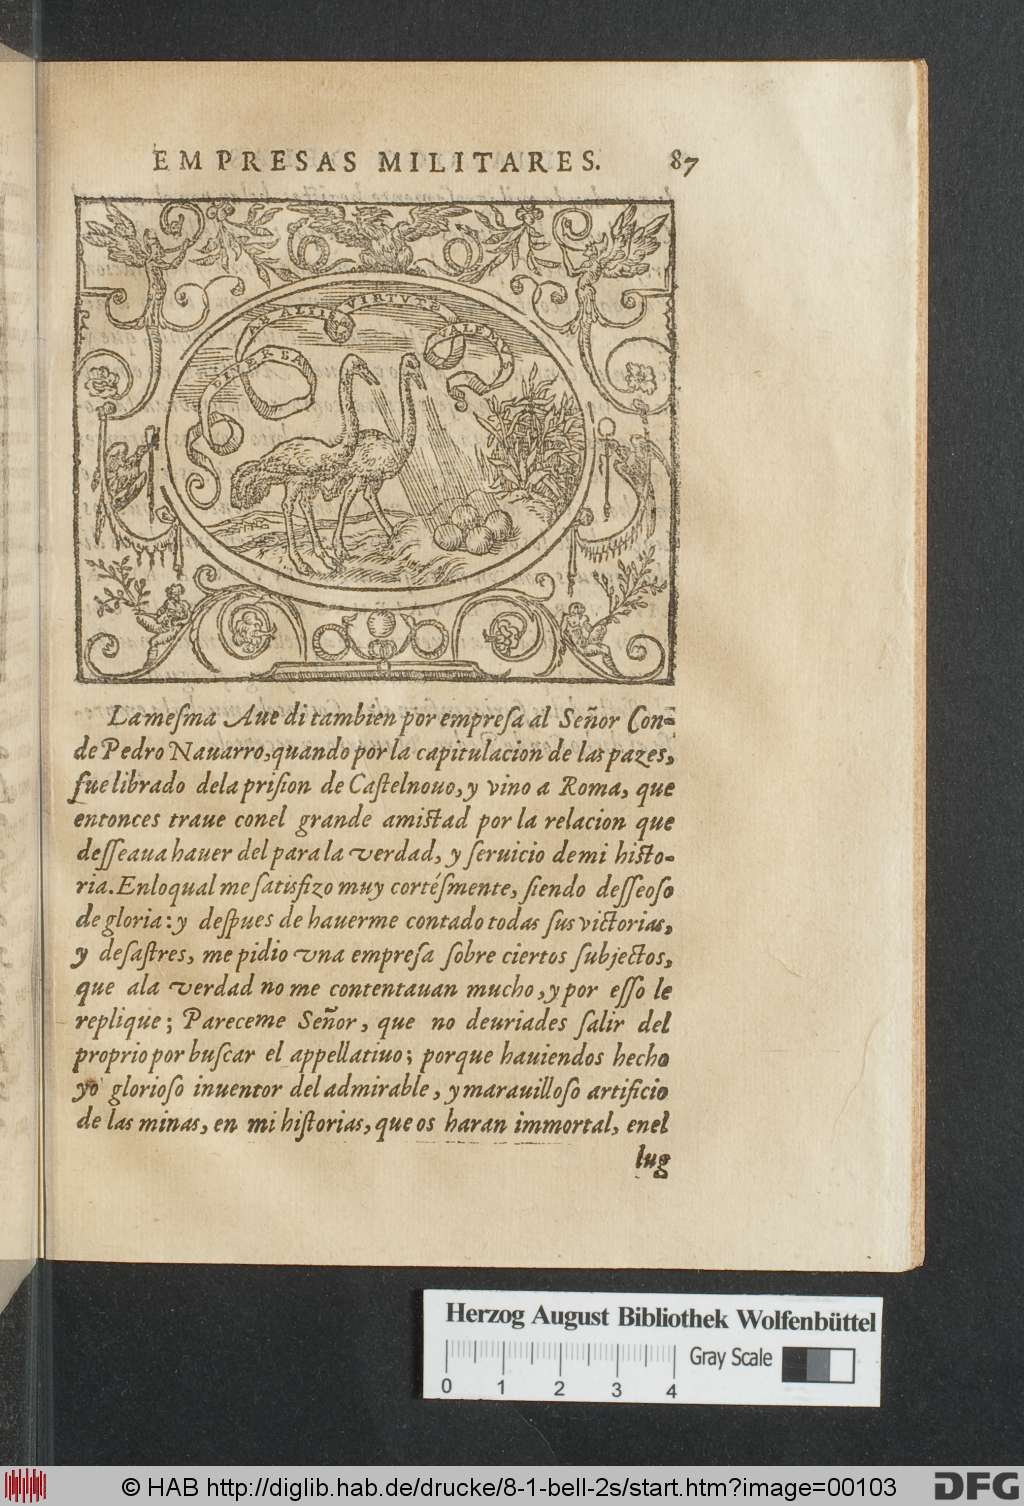 EMPRESAS MILITARES. 87
DIVERSA AB ALIIS VIRTVTE VALEM
La mesma Aue di tambien por empresa al Señor Con-
de Pedro Nauarro, quando por la capitulacion de las pazes,
fue librado dela prision de Castelnouo, y vino a Roma, que
entonces traue conel grande amistad por la relacion que
desseaua hauer del para la verdad, y seruicio de mi histo-
ria. Enloqual me satisfizo muy cortésmente, siendo desseoso
de gloria: y despues de hauerme contado todas sus victorias,
y desastres, me pidio vna empresa sobre ciertos subjectos,
que ala verdad no me contentauan mucho, y por esso le
replique; Pareceme Señor, que no deuriades salir del
proprio por buscar el appellatiuo; porque hauiendos hecho
yo glorioso inuentor del admirable, y marauilloso artificio
de las minas, en mi historias, que os haran immortal, enel
lug
Herzog August Bibliothek Wolfenbüttel
Gray Scale
0 1 2 3 4
© HAB http://diglib.hab.de/drucke/8-1-bell-2s/start.htm?image=00103
DFG